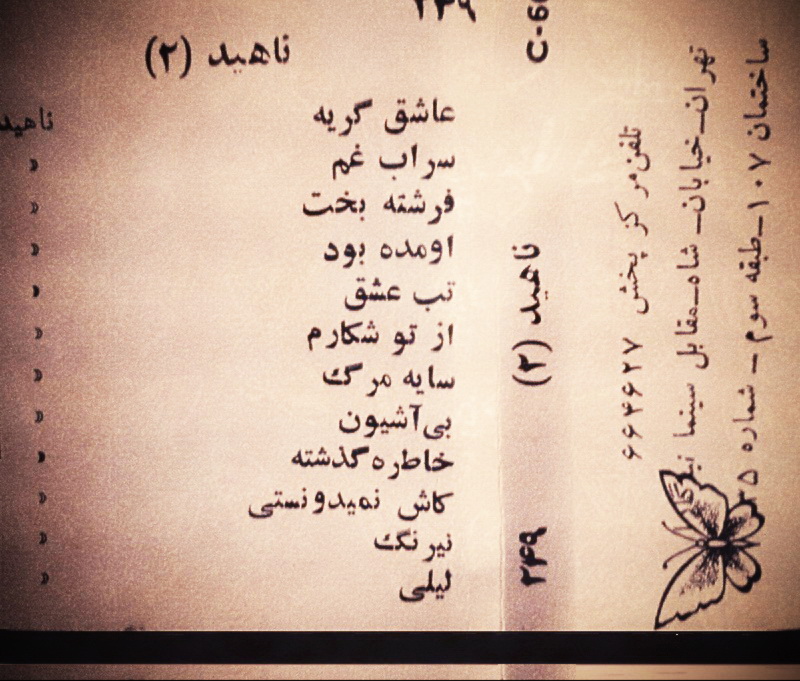 ۲۳۹
ناهید (۲)
ناهید
عاشق گریه
»
سراب غم
»
فرشته بخت
»
اومده بود
»
تب عشق
»
از تو شکارم
»
سایه مرگ
»
بی‌آشیون
»
خاطره گذشته
»
کاش نمیدونستی
»
نیرنگ
»
لیلی
C-60
ناهید (۲)
۲۴۹
تلفن مرکز پخش ۶۶۴۶۲۷
تهران_خیابان_شاه_مقابل سینما
ساختمان ۱۰۷_طبقه سوم _ شماره ۳۵